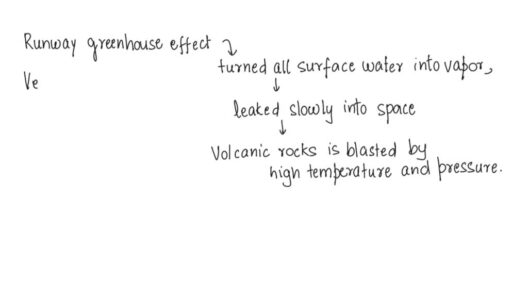 Runway greenhouse effect
turned all surface water into vapor,
Ve
leaked slowly into space
Volcanic rocks is blasted by
high temperature and pressure.